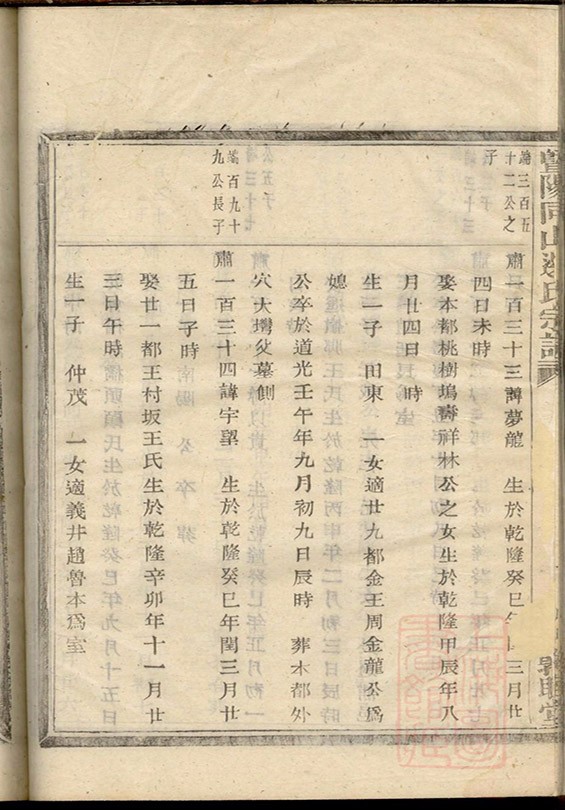 暨陽同山邊氏宗譜
端三百五
十二公之
子
肅一百三十三諱夢龍 生於乾隆癸巳年 三月廿
四日未時
娶本都桃樹塢壽祥林公之女生於乾隆甲辰年八
月廿四日 時
生一子 田東 一女適廿九都金王周金龍公爲
媳
公卒於道光壬午年九月初九日辰時 葬本都外
穴大塆父墓側
端百九十
九公長子
肅一百三十四諱宇望 生於乾隆癸巳年閏三月廿
五日子時
娶廿一都王村坂王氏生於乾隆辛卯年十一月廿
三日午時
生一子 仲茂 一女適義井趙魯本爲室